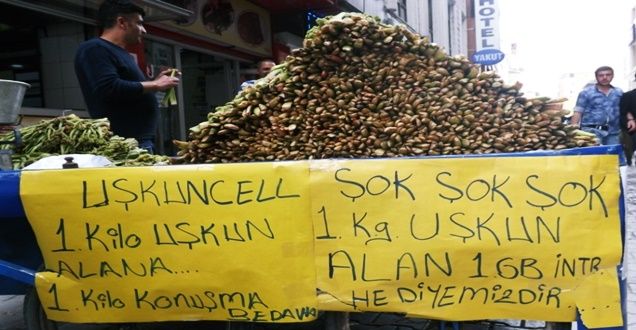 HOTEL
YAKUT
UŞKUNCELL
1. Kilo UŞKUN
ALANA....
1 Kilo KONUŞMA
BEDAVA
ŞOK ŞOK ŞOK
1. Kg. UŞKUN
ALAN 1.GB İNTR.
HEDİYEMİZDİR.....